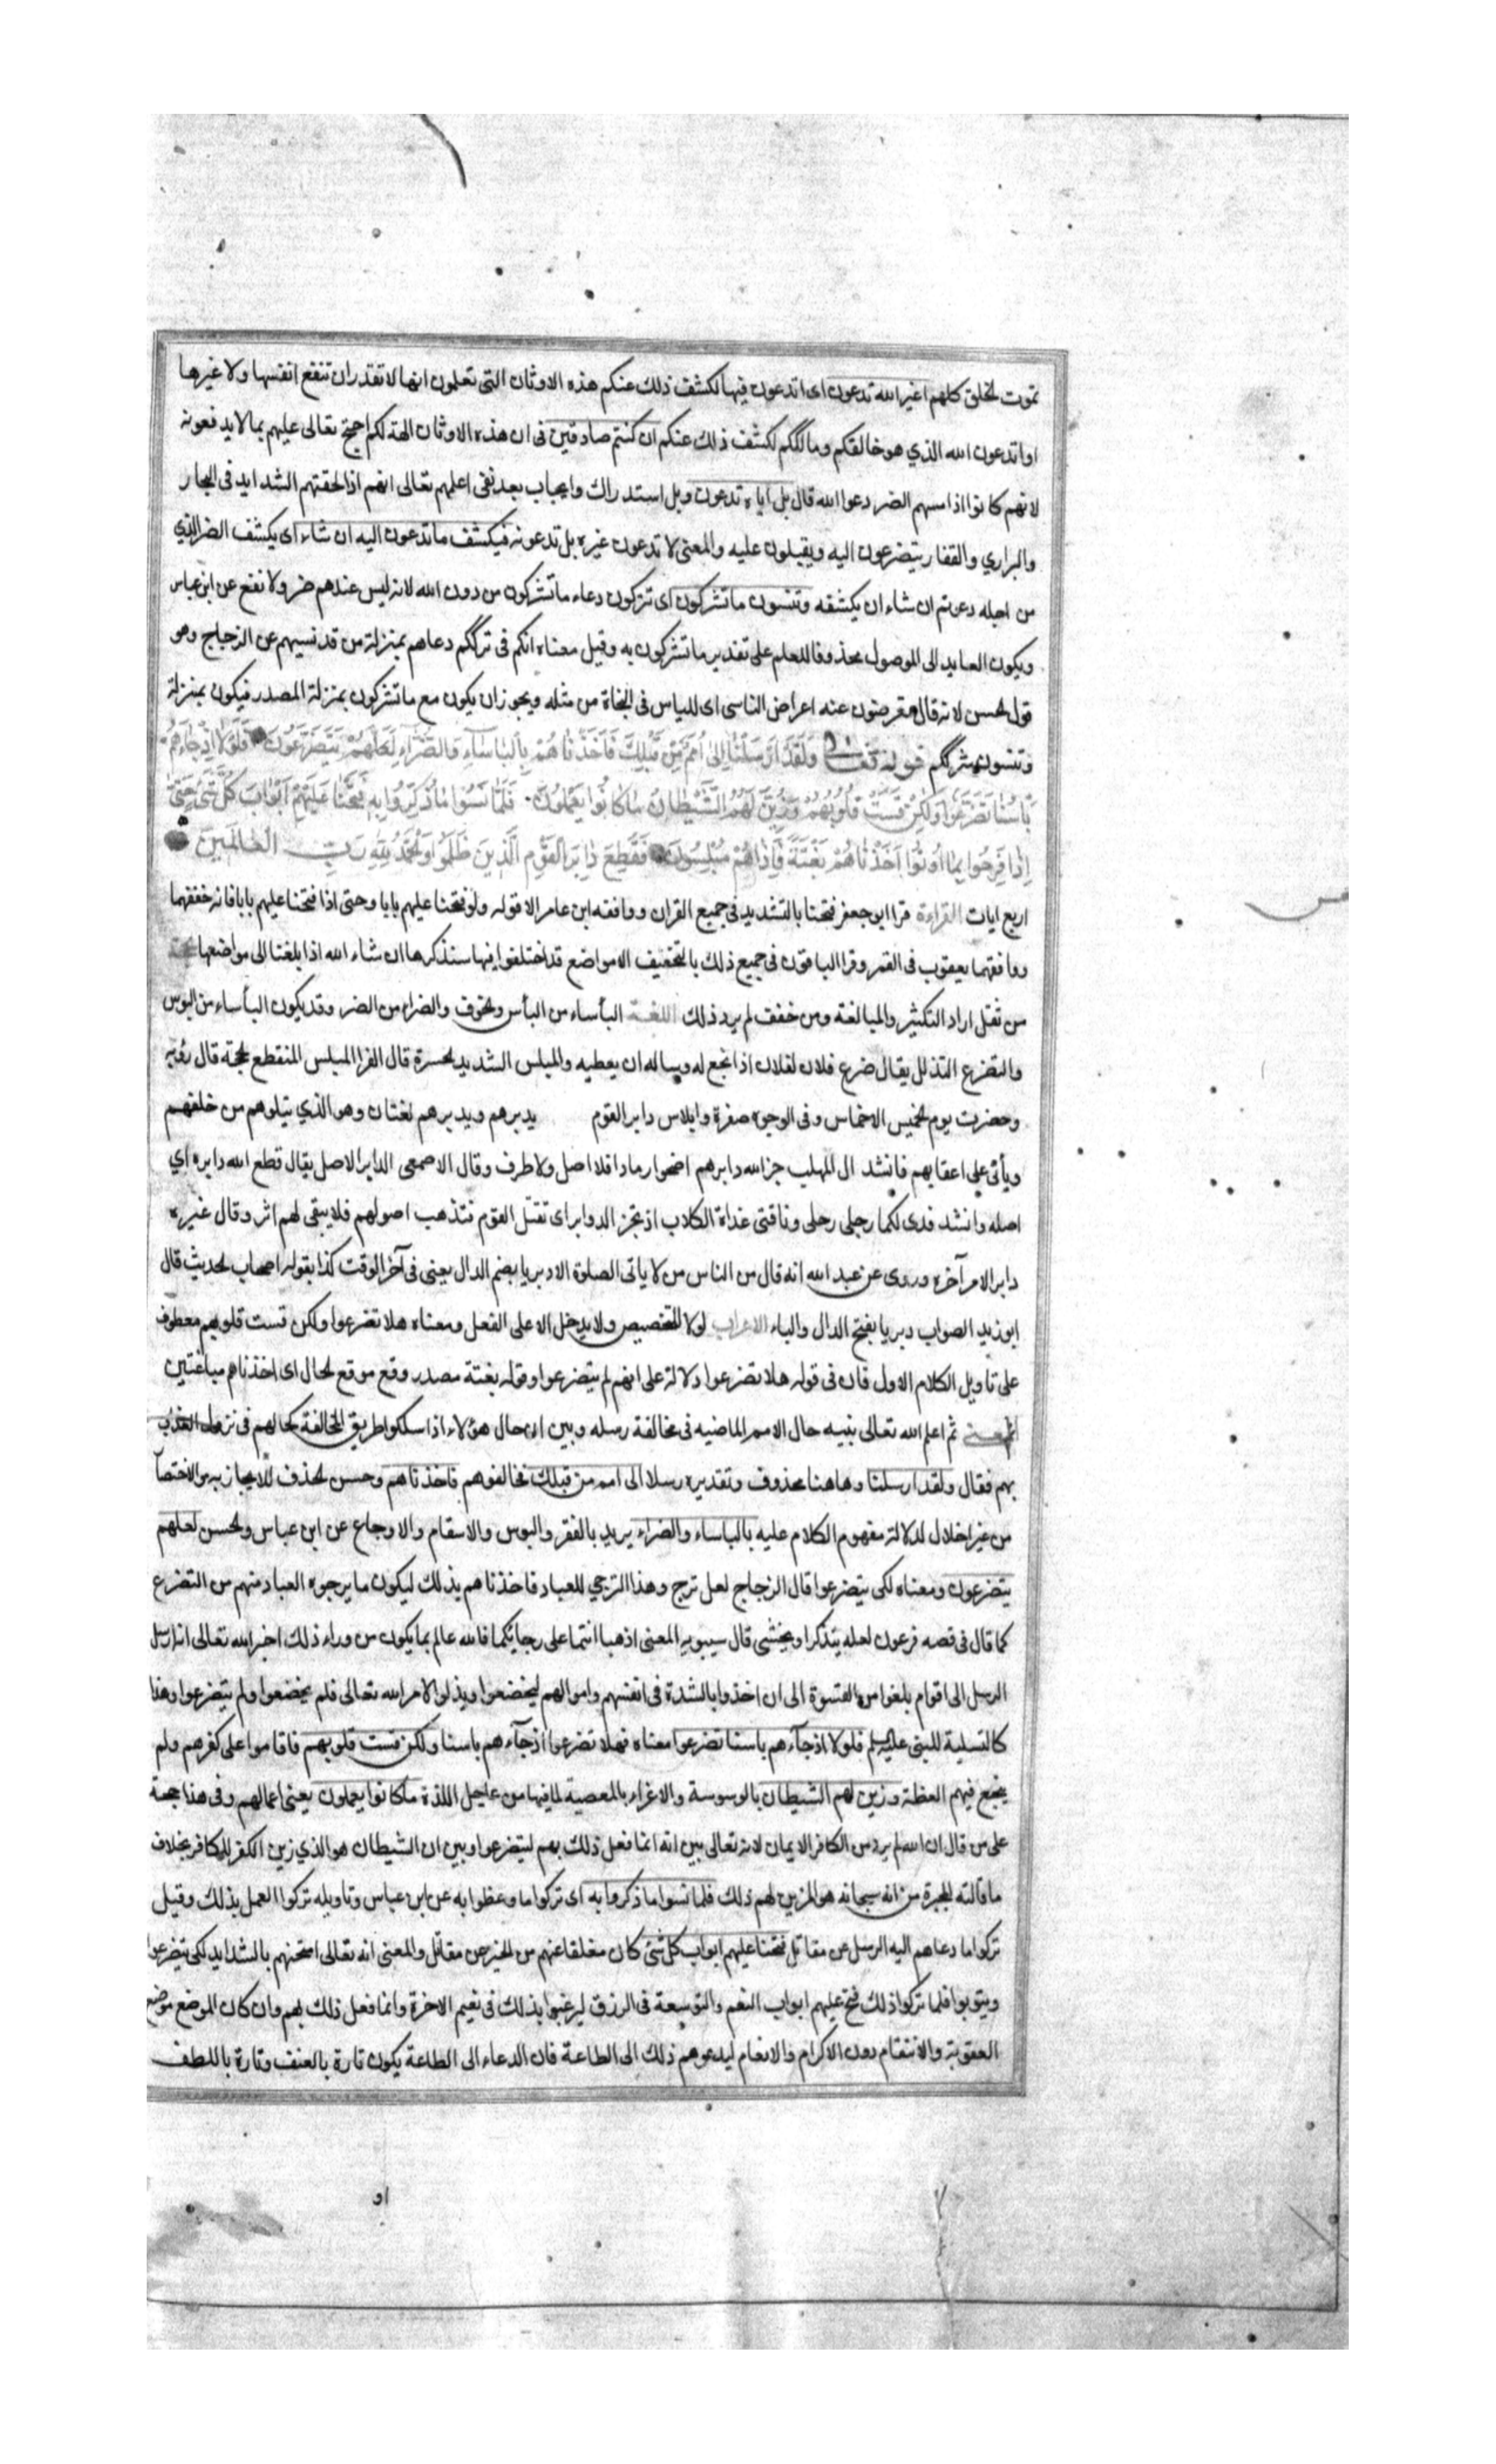 تموت الخلق كلهم اغير الله تدعون اى اتدعون فيها لكشف ذلك عنكم هذه الاوثان التى تعلمون انها لا تقدر ان تنفع انفسها ولا غيرها
او اتدعون الله الذي هو خالقكم ومالككم لكشف ذلك عنكم ان كنتم صادقين فى ان هذه الاوثان الهة لكم احتج تعالى عليهم بما لا يدفعونه
لانهم كانوا اذا مسهم الضر دعوا الله قال بل اياه تدعون وبل استدراك وايجاب بعد نفى اعلمهم تعالى انهم اذا لحقتهم الشدايد فى البحار
والبراري والقفار يتضرعون اليه ويقبلون عليه والمعنى لا تدعون غيره بل تدعونه فيكشف ما تدعون اليه ان شاء اى يكشف الضر الذي
من اجله دعوتم ان شاء ان يكشفه وتنسون ما تشركون اى تتركون دعاء ما تشركون من دون الله لانه ليس عندهم ضر ولا نفع عن ابن عباس
ويكون العايد الى الموصول محذوفا للعلم على تقدير ما تشركون به وقيل معناه انكم فى ترككم دعاهم بمنزلة من قد نسيهم عن الزجاج وهو
قول الحسن لانه قال تعرضون عنه اعراض الناسى اى للياس فى النجاة من مثله ويجوز ان يكون مع ما تشركون بمنزلة المصدر فيكون بمنزلة
وتنسون شرككم قوله تعالى وَلَقَدْ اَرْسَلْنٰا اِلىٰ اُمَمٍ مِنْ قَبْلِكَ فَاَخَذْنٰاهُمْ بِالْبَاسٰاءِ وَالضَّرّٰاءِ لَعَلَّهُمْ يَتَضَرَّعُونَ فَلَوْلٰا اِذْ جٰاءَهُمْ
بَاْسُنٰا تَضَرَّعُوا وَلٰكِنْ قَسَتْ قُلُوبُهُمْ وَزَيَّنَ لَهُمُ الشَّيْطٰانُ مٰا كٰانُوا يَعْمَلُونَ فَلَمّٰا نَسُوا مٰا ذُكِّرُوا بِهِ فَتَحْنٰا عَلَيْهِمْ اَبْوٰابَ كُلِّ شَىْءٍ حَتّىٰ
اِذٰا فَرِحُوا بِمٰا اُوتُوا اَخَذْنٰاهُمْ بَغْتَةً فَاِذٰا هُمْ مُبْلِسُونَ فَقُطِعَ دٰابِرُ الْقَوْمِ الَّذِينَ ظَلَمُوا وَالْحَمْدُ لِلّٰهِ رَبِّ الْعٰالَمِينَ
اربع ايات القراءة قرا ابو جعفر فتحنا بالتشديد فى جميع القران ووافقه ابن عامر الا قوله ولو فتحنا عليهم بابا وحتى اذا فتحنا عليهم بابا فانه خففهما
ووافقهما يعقوب فى القمر وقرا الباقون فى جميع ذلك بالتخفيف الا مواضع قد اختلفوا فيها سنذكرها ان شاء الله اذا بلغنا الى مواضعها الحجة
من ثقل اراد التكثير والمبالغة ومن خفف لم يرد ذلك اللغة البأساء من البأس والخوف والضراء من الضر وقد يكون البأساء من البوس
والتضرع التذلل يقال ضرع فلان لفلان اذا نجع له وساله ان يعطيه والمبلس الشديد الحسرة قال الفرا المبلس المنقطع الحجة قال رؤبة
وحضرت يوم الخميس الاخماس وفى الوجوه صفرة وابلاس دابر القوم يدبرهم ويدبرهم لغتان وهو الذي يتلوهم من خلفهم
ويأتى على اعقابهم فانشد ال المهلب جز الله دابرهم اضحوا رمادا فلا اصل ولا طرف وقال الاصمعى الدابر الاصل يقال قطع الله دابره اي
اصله وانشد فدى لكما رجلى رحلى وناقتى غداة الكلاب اذ تجز الدوابر اى تقتل القوم فتذهب اصولهم فلا يبقى لهم اثر وقال غيره
دابر الامر آخره وروى عن عبد الله انه قال من الناس من لا ياتى الصلوة الا دبريا بضم الدال يعنى فى آخر الوقت كذا يقوله اصحاب الحديث قال
ابو زيد الصواب دبريا بفتح الدال والباء الاعراب لولا للتحضيض ولا يدخل الا على الفعل ومعناه هلا تضرعوا ولكن قست قلوبهم معطوف
على تاويل الكلام الاول فان فى قوله هلا تضرعوا دلالة على انهم لم يتضرعوا وقوله بغتة مصدر وقع موقع الحال اى اخذناهم مباغتين
المعنى ثم اعلم الله تعالى نبيه حال الامم الماضيه فى مخالفة رسله وبين ان حال هؤلاء اذا سلكوا طريق المخالفة كحالهم فى نزول العذاب
بهم فقال ولقد ارسلنا وهاهنا محذوف وتقديره رسلا الى امم من قبلك فخالفوهم فاخذناهم وحسن الحذف للايجاز به والاختصار
من غير اخلال لدلالة مفهوم الكلام عليه بالباساء والضراء يريد بالفقر والبوس والاسقام والاوجاع عن ابن عباس والحسن لعلهم
يتضرعون ومعناه لكى يتضرعوا قال الزجاج لعل ترج وهذا الترجي للعباد فاخذناهم بذلك ليكون ما يرجوه العباد منهم من التضرع
كما قال فى قصه فرعون لعله يتذكر او يخشى قال سيبويه المعنى اذهبا انتما على رجائكما فالله عالم بما يكون من وراء ذلك اخبر الله تعالى انه ارسل
الرسل الى اقوام بلغوا من القسوة الى ان اخذوا بالشدة فى انفسهم واموالهم ليخضعوا ويذلوا لامر الله تعالى فلم يخضعوا ولم يتضرعوا وهذا
كالتسلية للنبى عليه السلم فلولا اذ جآءهم باسنا تضرعوا معناه فهلا تضرعوا اذ جآءهم باسنا ولكن قست قلوبهم فاقاموا على كفرهم ولم
ينجع فيهم العظة وزين لهم الشيطان بالوسوسة والاغراء بالمعصية لما فيها من عاجل اللذة ما كانوا يعملون يعنى اعمالهم وفى هذا حجة
على من قال ان الله لم يرد من الكافر الايمان لانه تعالى بين انه انما فعل ذلك بهم ليتضرعوا وبين ان الشيطان هو الذي زين الكفر للكافر بخلاف
ما قالته المجبرة من انه سبحانه هو المزين لهم ذلك فلما نسوا ما ذكروا به اى تركوا ما وعظوا به عن ابن عباس وتاويله تركوا العمل بذلك وقيل
تركوا ما دعاهم اليه الرسل عن مقاتل فتحنا عليهم ابواب كل شئ كان مغلقا عنهم من الخير عن مقاتل والمعنى انه تعالى امتحنهم بالشدايد لكى يتضرعوا
ويتوبوا فلما تركوا ذلك فتح عليهم ابواب النعم والتوسعة فى الرزق ليرغبوا بذلك فى نعيم الاخرة وانما فعل ذلك بهم وان كان الموضع موضع
العقوبة والانتقام دون الاكرام والانعام ليدعوهم ذلك الى الطاعة فان الدعاء الى الطاعة يكون تارة بالعنف وتارة باللطف
او